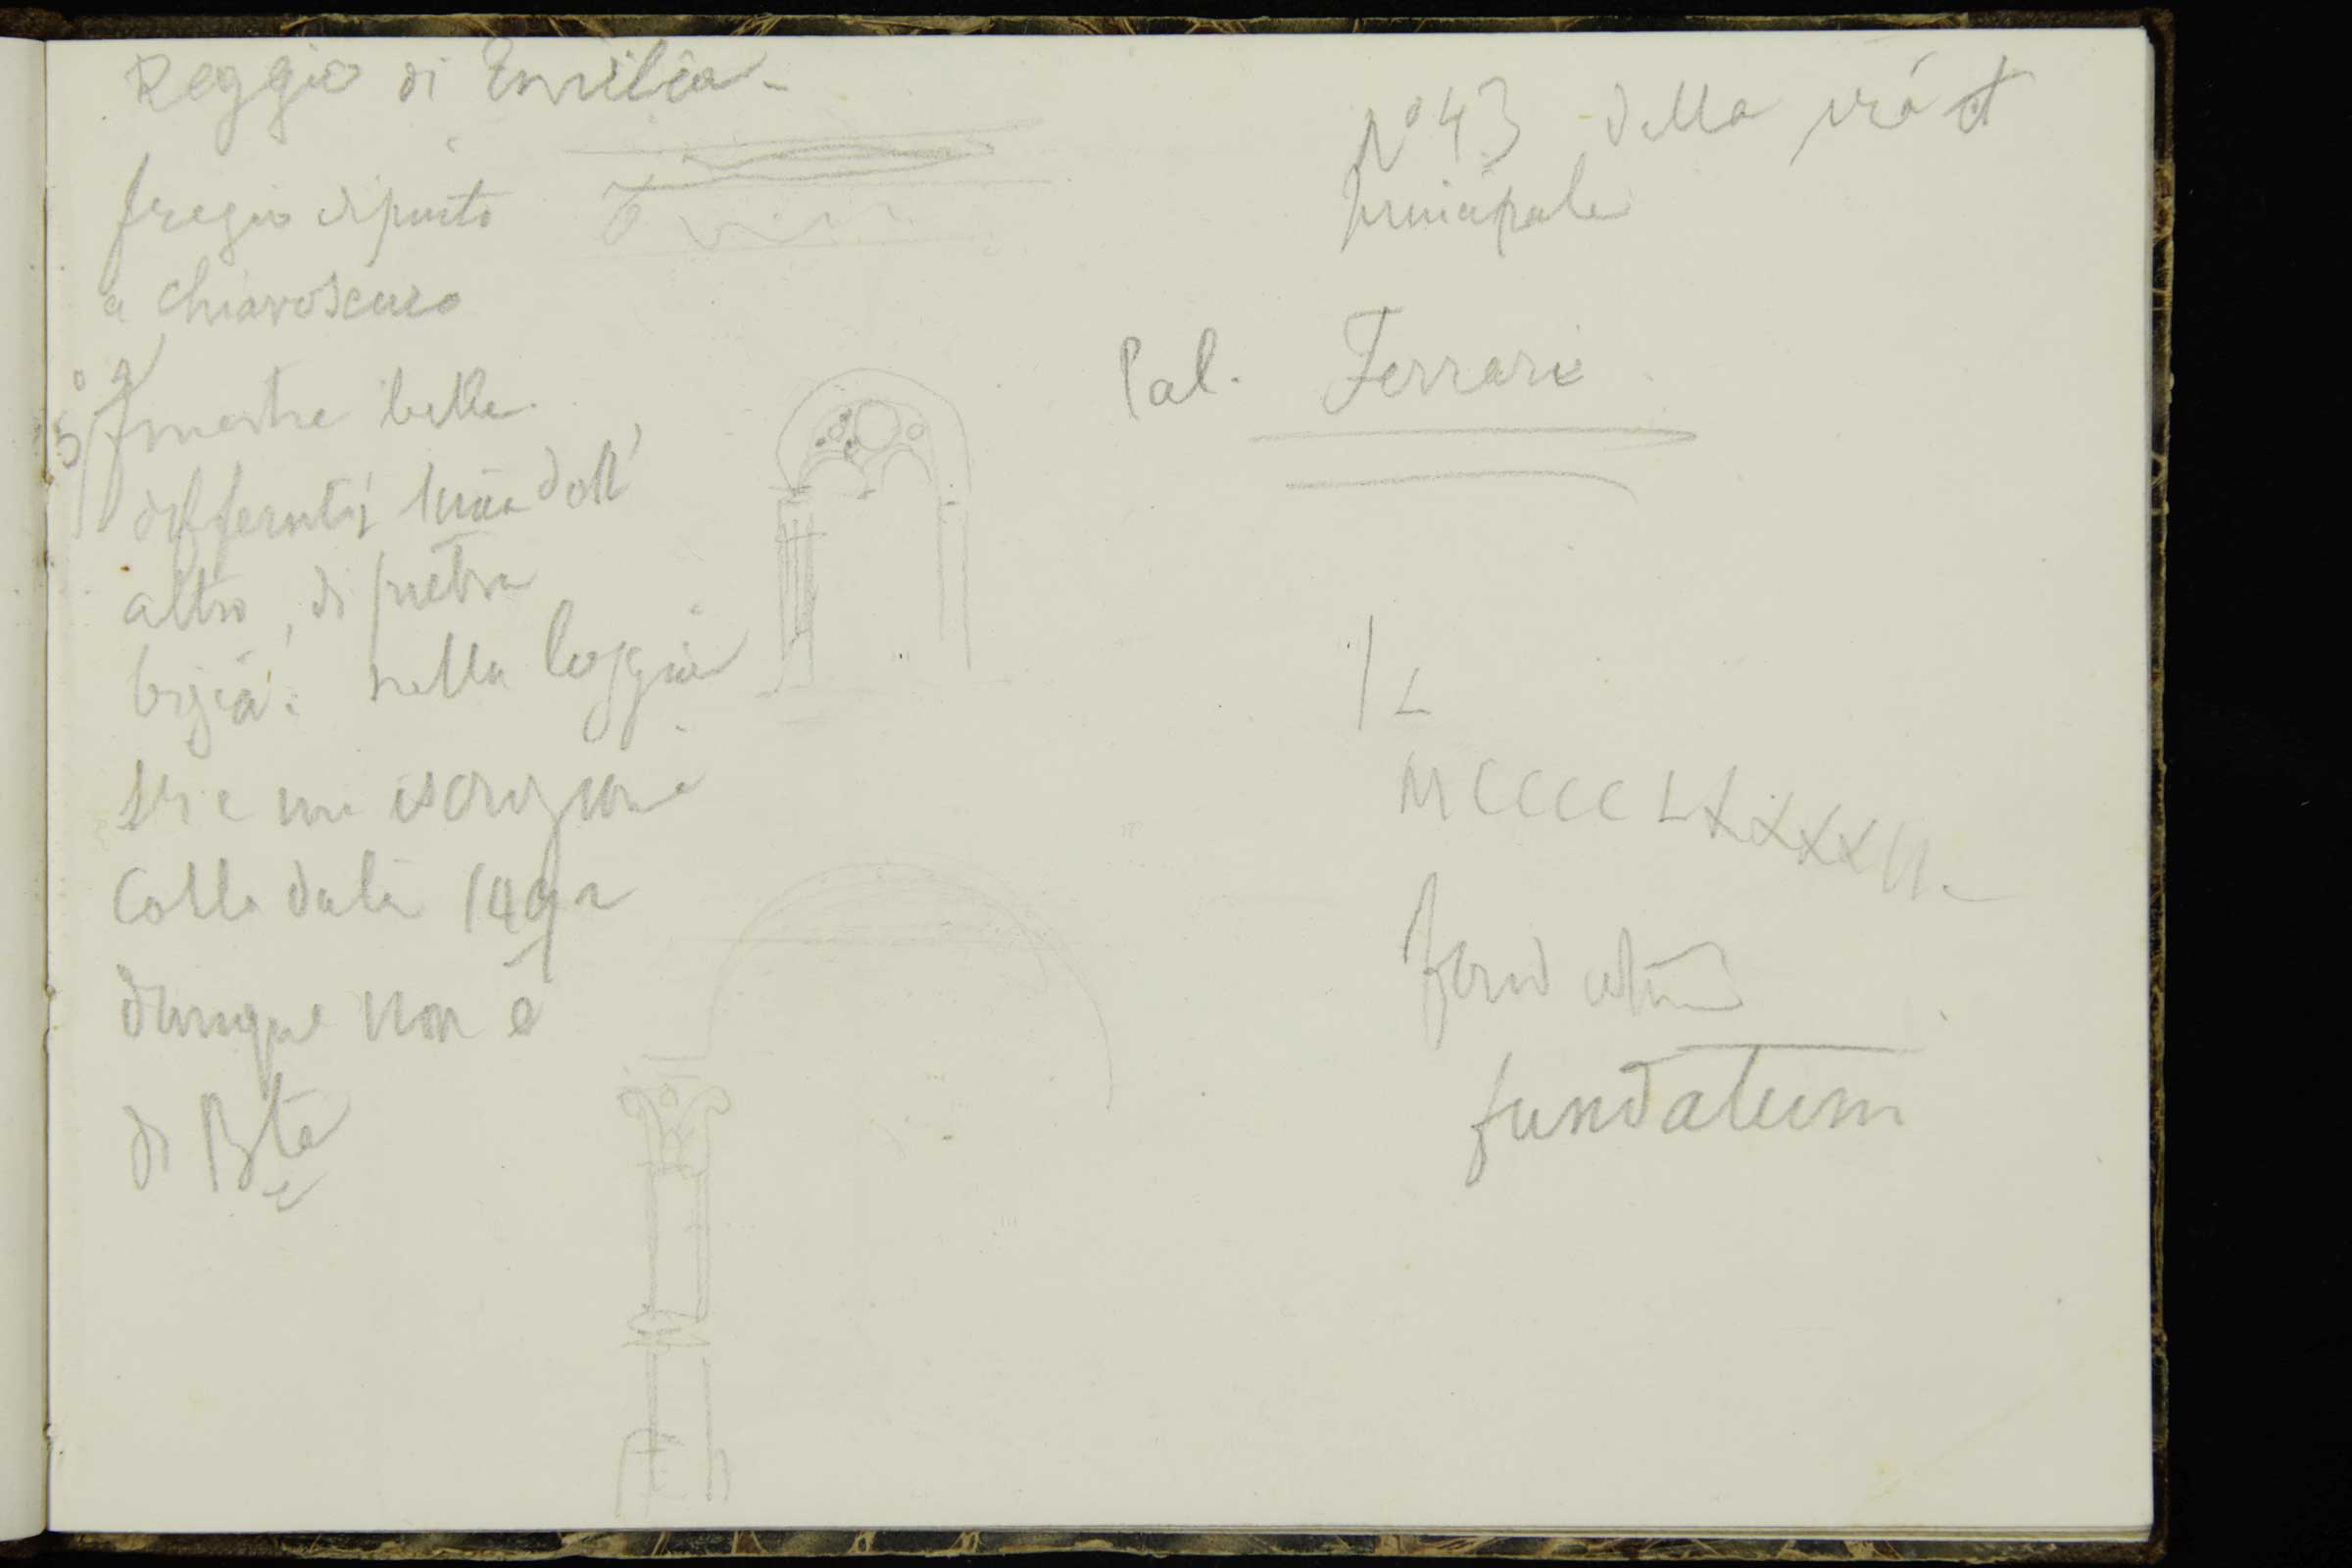 Reggio di Emilia -
fregio dipinto
a chiaroscuro
finestre belle
differenti l'una dall'
altro, di pietra
bigia. nella loggia
vi è una iscrizione
colla data 1492
dunque non è
di Bte
No 43 della via
principale
Pal. Ferrari
L
MCCCCLXXXXII.
fundatum
fundatum